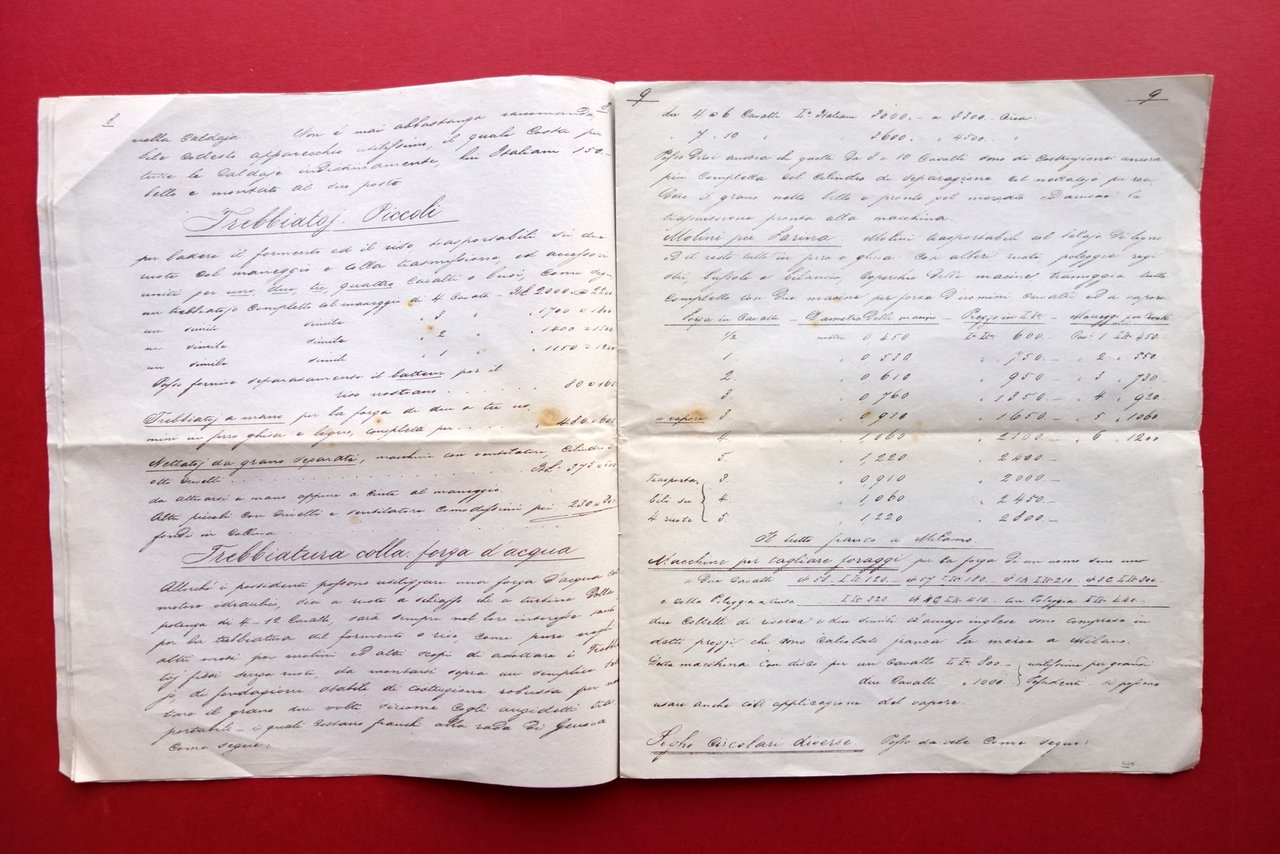 8
8
nella Caldaja Non è mai abbastanza raccomanda
bile codesto apparecchio utilissimo, il quale Costa per
tutte le Caldaje indistintamente, Lire Italiane 150.-
bello e montato al suo posto
Trebbiatoj Piccoli
per battere il formento ed il riso, trasportabili su due
ruote col maneggio e colla trasmissione, ed accessori
uniti per uno due tre quattro Cavalli o buoi, Come
un trebbiatojo Completo col maneggio di 4 Cavalli 2000 a 2200
un simile simile " 3 " " 1700 a 1800
un simile simile " 2 " " 1400 a 1500
un simile simile " 1 " " 1150 a 1200
Posso fornire separatamente il battere per il
riso nostrano " 80 a 160
Trebbiatoj a mano per la forza di due a tre uo
mini in ferro ghisa e legno, completa per " 480 a 600
Nettatoj da grano separati, macchine con ventilatore, Cilindri e
altri Crivelli 375 a 500
da attivarsi a mano oppure a Cinta al maneggio.
Altri piccoli con Crivello e ventilatore Comodissimi per 230
Trebbiatura colla forza d'acqua
Allorché i possidenti possono utilizzare una forza d'acqua
motore idraulici, sia a ruote a schiaffo che a turbine
potenza di 4-12 Cavalli sarà sempre nel loro interesse
per la trebbiatura del formento o riso, come pure
altri usi per molini ed altri scopi di adottare i
toj fissi senza ruote, da montarsi sopra un semplice
jo di fondazione stabili di costruzione robusta per
tare il grano su volte siccome Cogli anzidetti
portabili - i quali Costano franchi alla rada di Genova
Come segue:
9
9
da 4 a 6 Cavalli Lre Italiane 3000.- a 3300 Circa.
" 7. 10 " " 3600. " 4500 "
Posso Dirvi ancora che quelli Da 8 a 10 Cavalli sono di Costruzione ancora
più Completa col Cilindro di separazione ed nettatojo per
il grano netto bello e pronto pel mercato
trasmissione pronta alla macchina.
Molini per Farina. Molini trasportabili col telajo Di legno
ed il resto tutto in ferro e ghisa Con alberi ruote poleggie regi
stri, bilancia, Coperchio Delle macine tramoggia tutto
Completo con Due macine per forza D'uomini Cavalli ed a vapore
Forza in Cavalli - Diametro Delle macine - Prezzo in Lre - Maneggi per Cavalli
1/2 metri 0 450 600.- Per 1 450.-
1. " 0 530 " 750.- " 2 " 550
2. " 0 610 " 950.- " 3 " 730.-
3. " 0 760 " 1350.- " 4 " 920
a vapore 3. " 0 910 " 1650.- " 5 " 1060
4. " 1,060 " 2100.- " 6 " 1200
5. " 1,220 " 2400.-
Trasporta 3. " 0 910 " 2000.-
bili su 4. " 1,060 " 2450.-
4 ruote 5. " 1,220 " 2800.-
Il tutto franco a Milano
Macchine per tagliare foraggi per la forza di un uomo sino
a Due Cavalli
e colla Poleggia a Cinta 320 410. con Poleggia 440.-
due Coltelli di riserva e due simili d'acciajo inglese sono compresi in
detti prezzi che sono Calcolati franca la merce a Milano.
Detta macchina Con disco per un Cavallo 800.- utilissime per grandi
due Cavalli " 1000. Possidenti - si possono
usare anche coll'applicazione del vapore.
Seghe Circolari diverse Posso darvele Come segue: